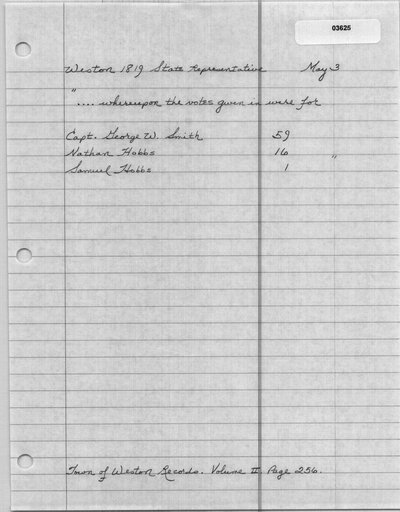 03625
Weston 1819 State Representative May 3
"
.... whereupon the votes given in were for
Capt. George W. Smith 59
Nathan Hobbs 16 "
Samuel Hobbs 1
Town of Weston Records. Volume II. Page 256.